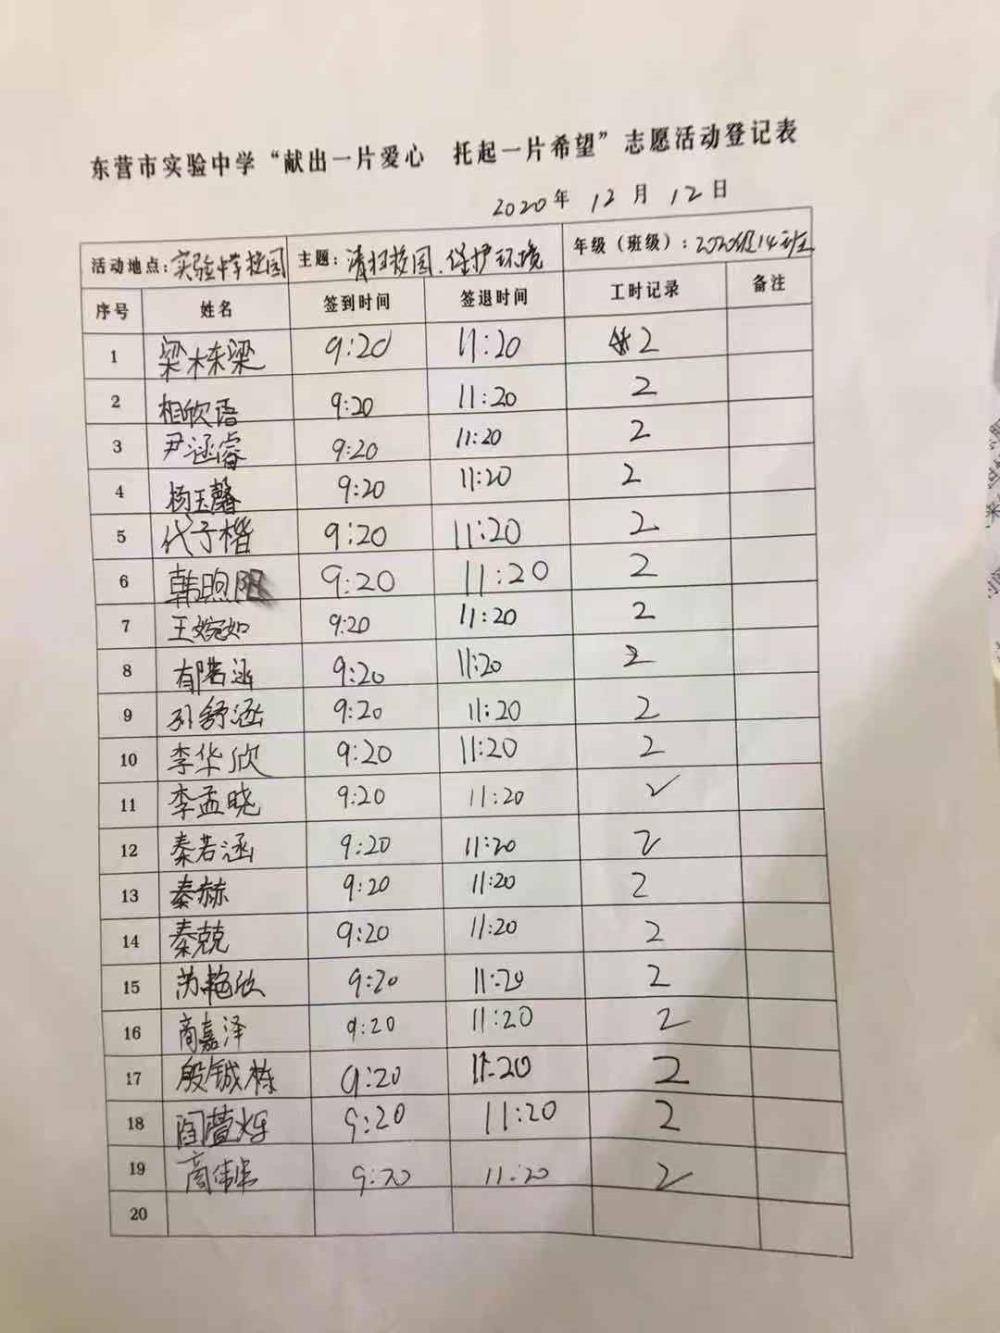 东营市实验中学“献出一片爱心 托起一片希望”志愿活动登记表
2020年 12月 12日
活动地点:实验中学校园 主题:清扫校园、保护环境 年级(班级):2020级14班
序号 姓名 签到时间 签退时间 工时记录 备注
1 梁栋梁 9:20 11:20 2
2 相欣语 9:20 11:20 2
3 尹涵睿 9:20 11:20 2
4 杨玉馨 9:20 11:20 2
5 代子楷 9:20 11:20 2
6 韩煦阳 9:20 11:20 2
7 王婉如 9:20 11:20 2
8 郁若涵 9:20 11:20 2
9 孙舒涵 9:20 11:20 2
10 李华欣 9:20 11:20 2
11 李孟晓 9:20 11:20 2
12 秦若涵 9:20 11:20 2
13 秦赫 9:20 11:20 2
14 秦兢 9:20 11:20 2
15 艳欣 9:20 11:20 2
16 商嘉泽 9:20 11:20 2
17 殷铖栋 9:20 11:20 2
18 9:20 11:20 2
19 9:20 11:20 2
20